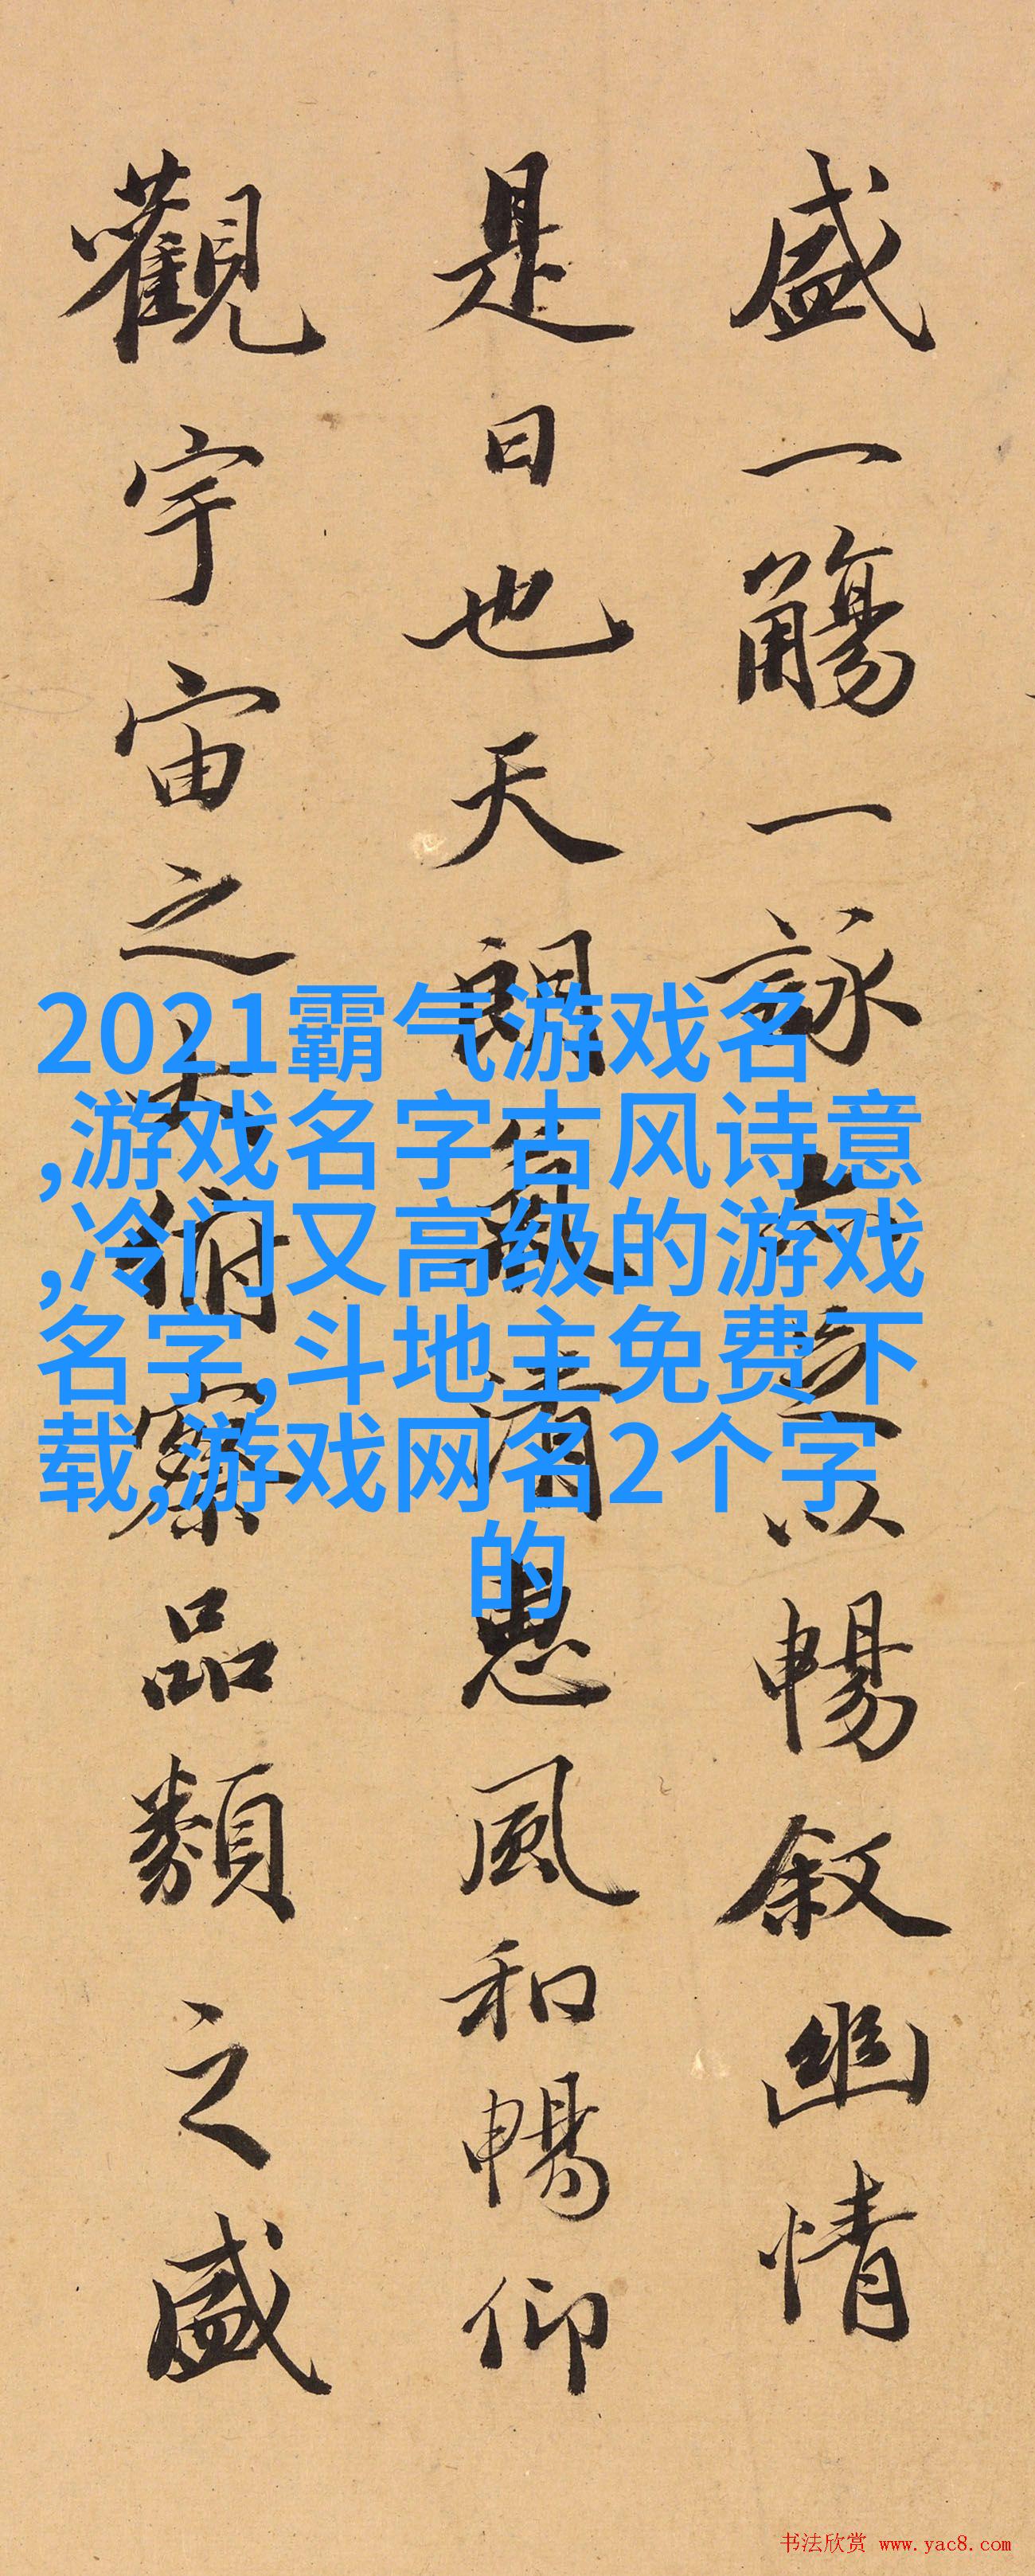 盛一觴一詠亦足以暢叙幽情
是日也天朗氣清惠風和暢仰
觀宇宙之大俯察品類之盛
2021霸气游戏名
,游戏名字古风诗意
,冷门又高级的游戏
名字,斗地主免费下
载,游戏网名2个字
的
书法欣赏 www.yac8.com